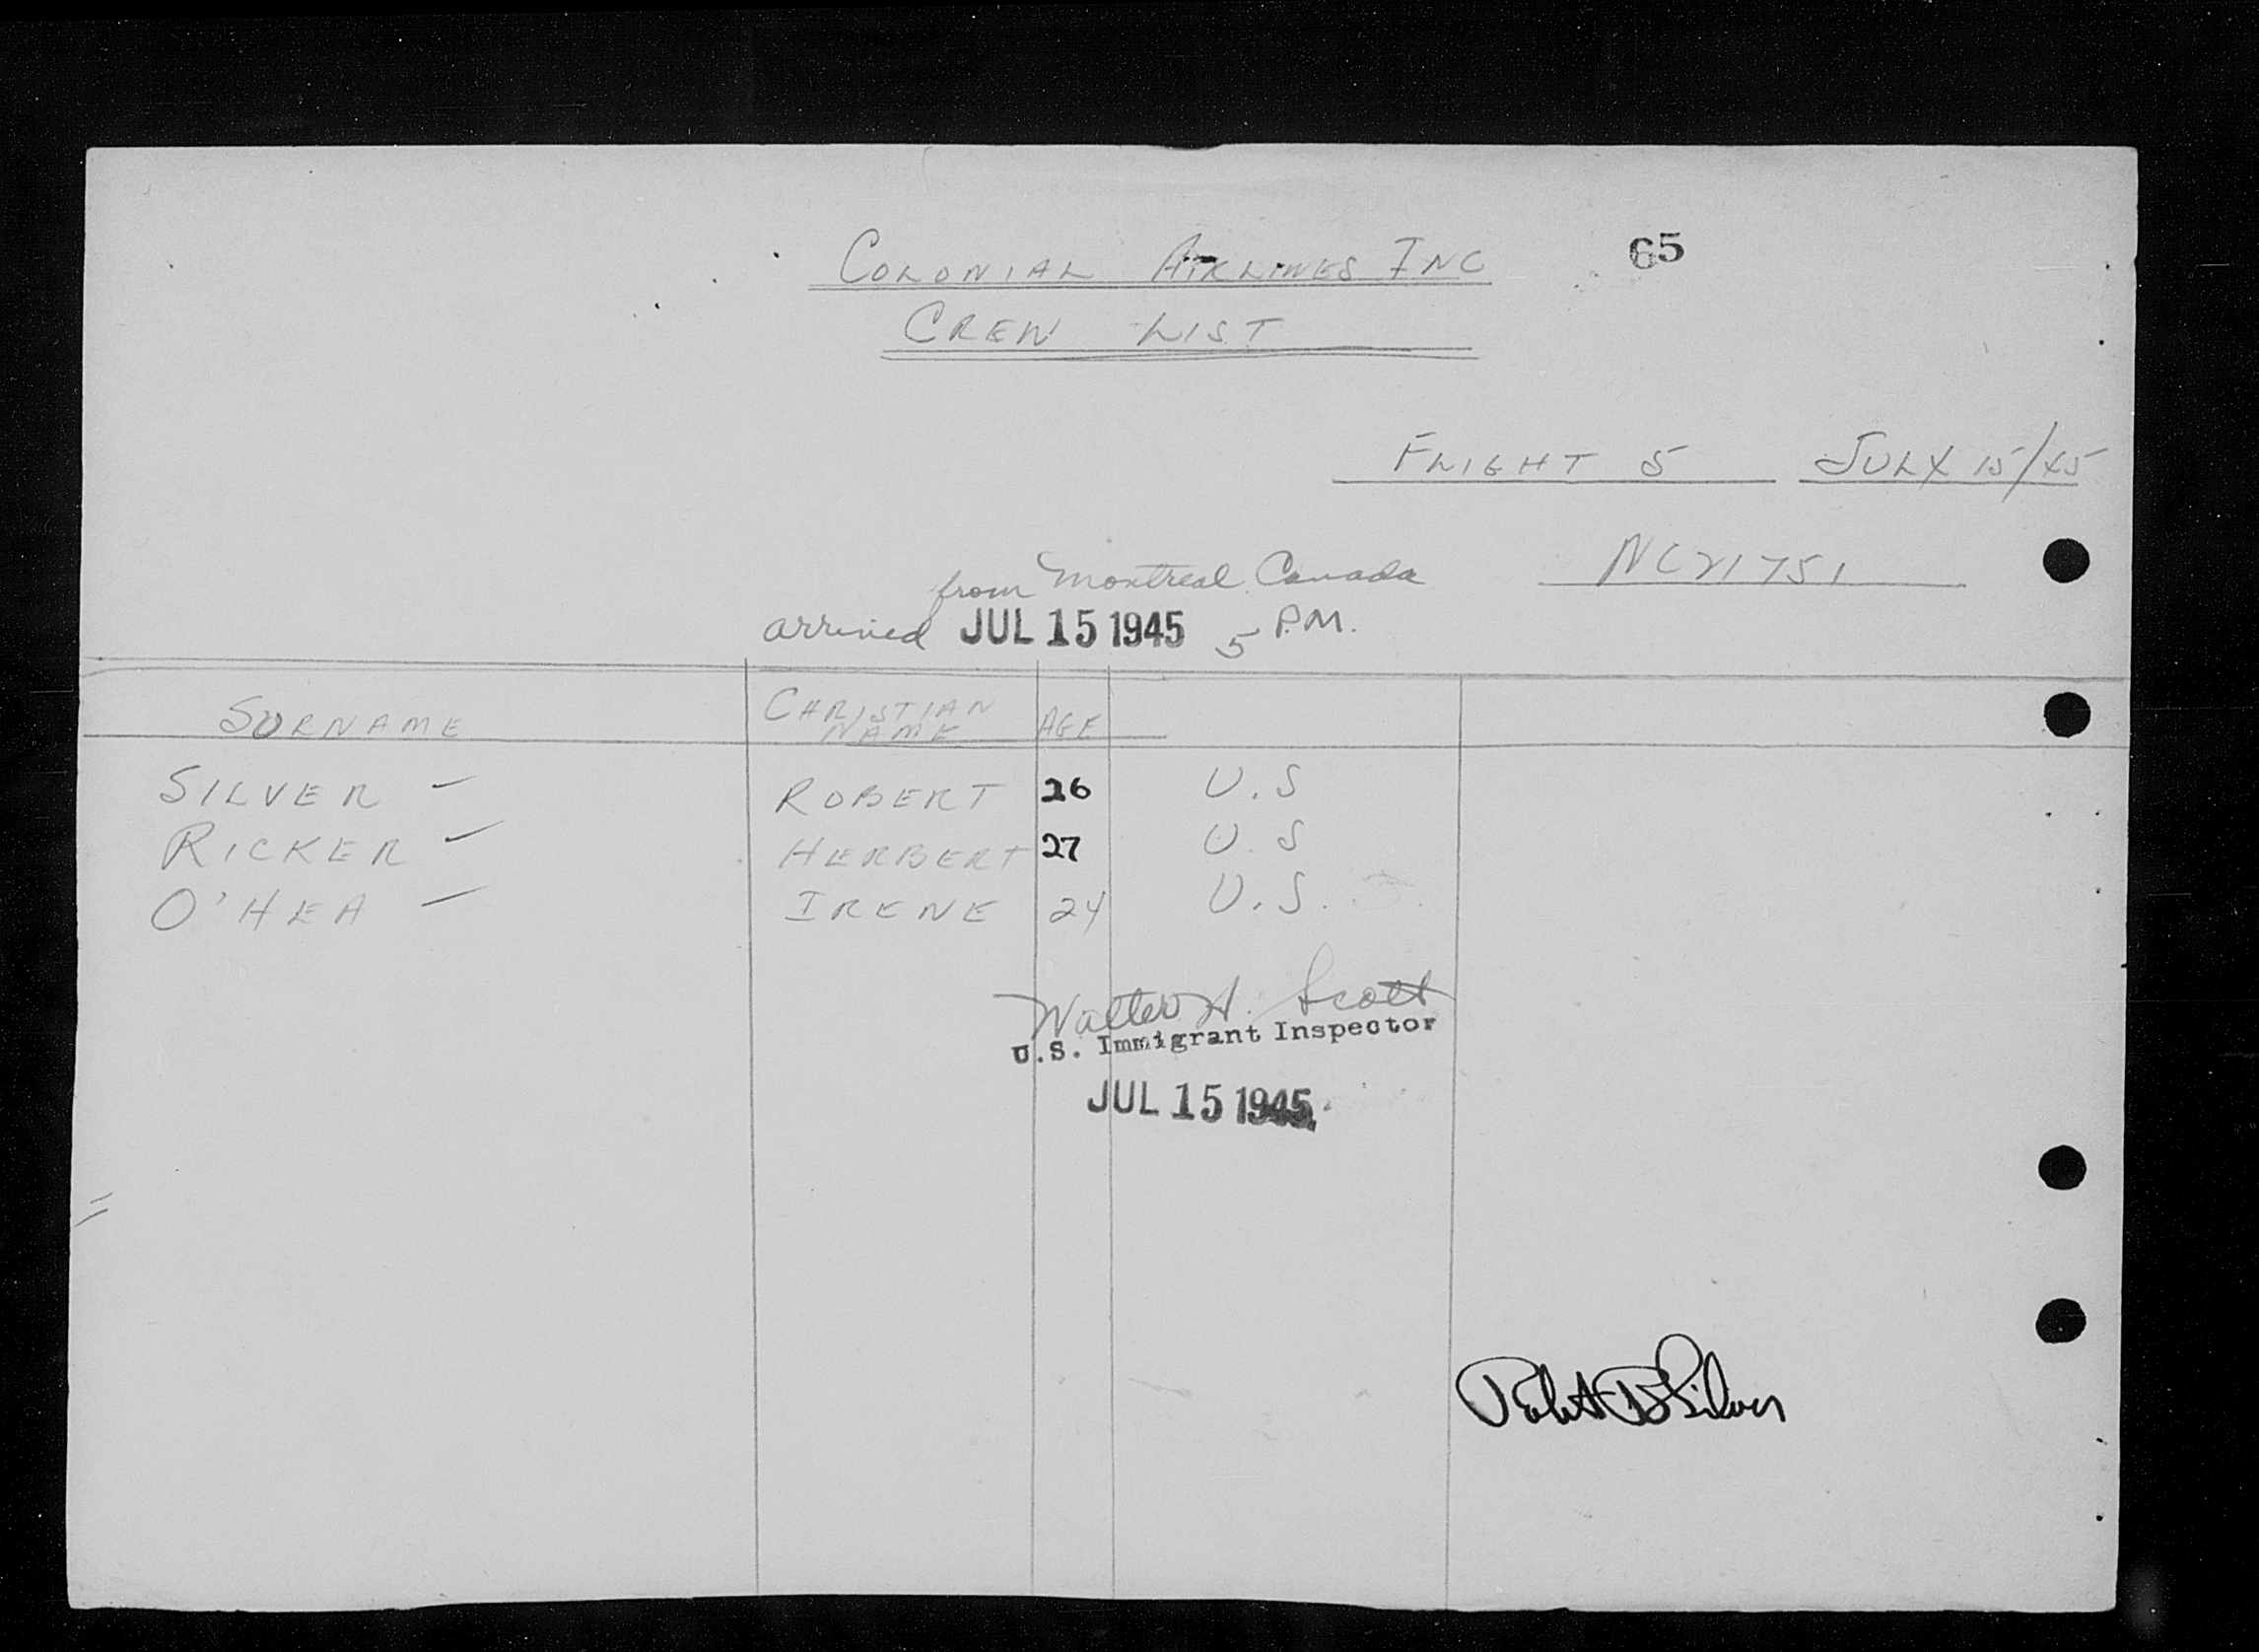 COLONIAL AIRLINES INC 65
CREW LIST
FLIGHT 5 JULY 15/45
from Montreal Canada NC21751
arrived JUL 15 1945 5 P.M.
SURNAME CHRISTIAN NAME AGE
SILVER - ROBERT 26 U.S
RICKER - HERBERT 27 U.S
O'HEA - IRENE 24 U.S.
Walter H. Scott
U.S. Immigrant Inspector
JUL 15 1945
Robt B Silver